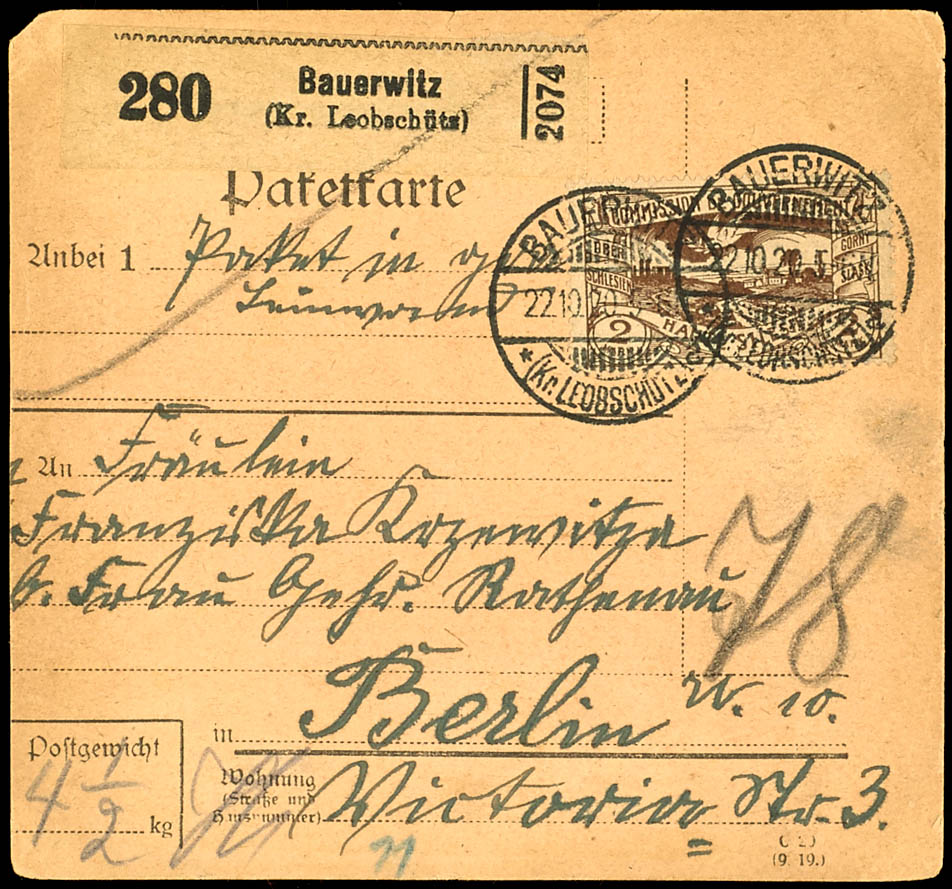 280 Bauerwitz 2074
(Kr. Leobschütz)
Paketkarte
COMMISSION DE GOUVERNEMENT
OBER SCHLESIEN
GORNY SLASK
2
BAUERWITZ
22.10.20.
* (Kr. LEOBSCHÜTZ)
BAUERWITZ
22.10.20. 5
(Kr. LEOBSCHÜTZ)
Anbei 1 Paket in
Leinwand
An Fräulein
Franziska Krzewitza
b. Frau Gehr. Rathenau
78
in Berlin W. 10.
Postgewicht
4 1/2 kg
Wohnung
(Straße und
Hausnummer)
Victoria Str. 3.
11
C 29
(9. 19.)